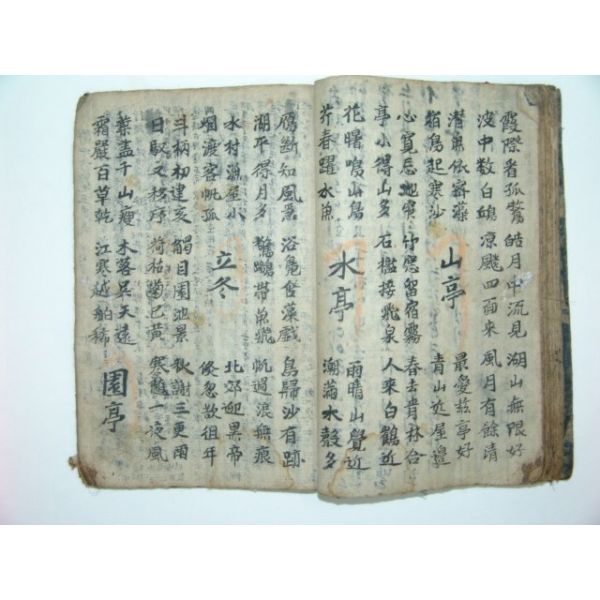 霞際看孤鶩 皓月中流見 湖山無限好
波中數白鷗 凉颸四面來 風月有餘清
潛魚依密藻 山亭 最愛玆亭好
宿鳥起寒沙 青山近屋邊
心寬忘地窄 竹應留宿霧 春去青林合
亭小得山多 石檻接飛泉 人來白鶴近
花曙喚山鳥 水亭 雨晴山覺近
芹春躍水魚 潮滿水聲多
雁斷知風 浴鳧唼藻戲 鳥歸沙有跡
湖平得月多 驚鷗帶魚飛 帆過浪無痕
水村漁屋小 立冬 北郊迎異帝
烟渡客帆孤 倏忽欲徂年
斗柄初建亥 觸目園池景 秋謝三更雨
日馭又移序 荷枯菊已黃 寒 一夜風
葉盡千山瘦 木落吳天遠 園亭
霜嚴百草乾 江寒越舶稀